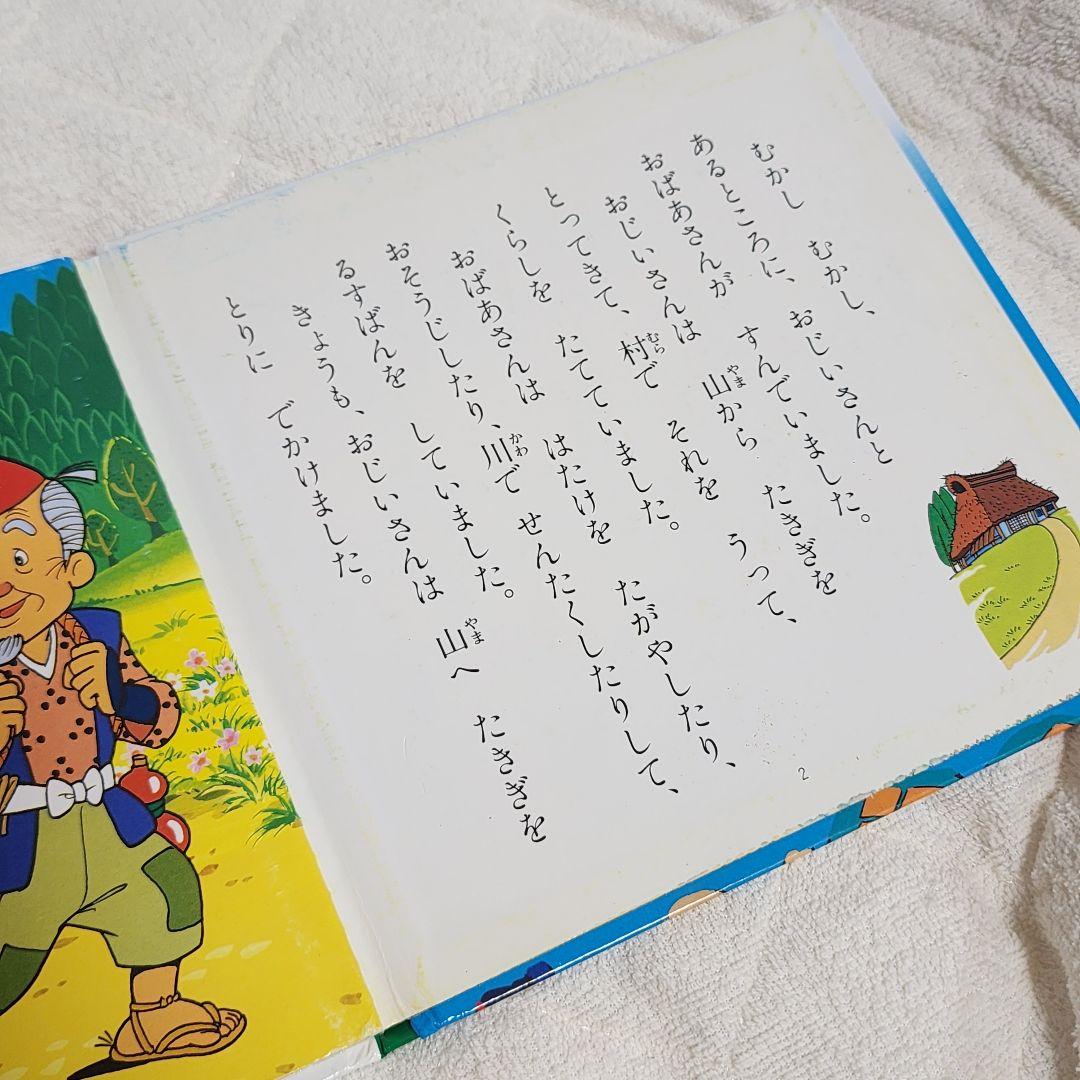 むかし　むかし、
あるところに、　おじいさんと
おばあさんが　すんでいました。
おじいさんは　山から　たきぎを
とってきて、　村で　それを　うって、
くらしを　たてていました。
おばあさんは　はたけを　たがやしたり、
おそうじしたり、川で　せんたくしたりして、
るすばんを　していました。
きょうも、おじいさんは　山へ　たきぎを
とりに　でかけました。
やま
むら
かわ
やま
2